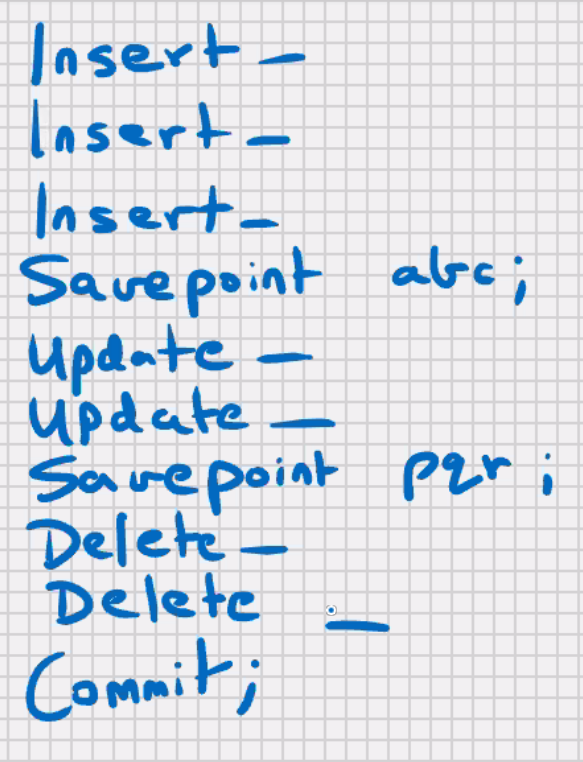 Insert —
Insert —
Insert —
Savepoint abc;
Update —
Update —
Savepoint pqr;
Delete —
Delete —
Commit;